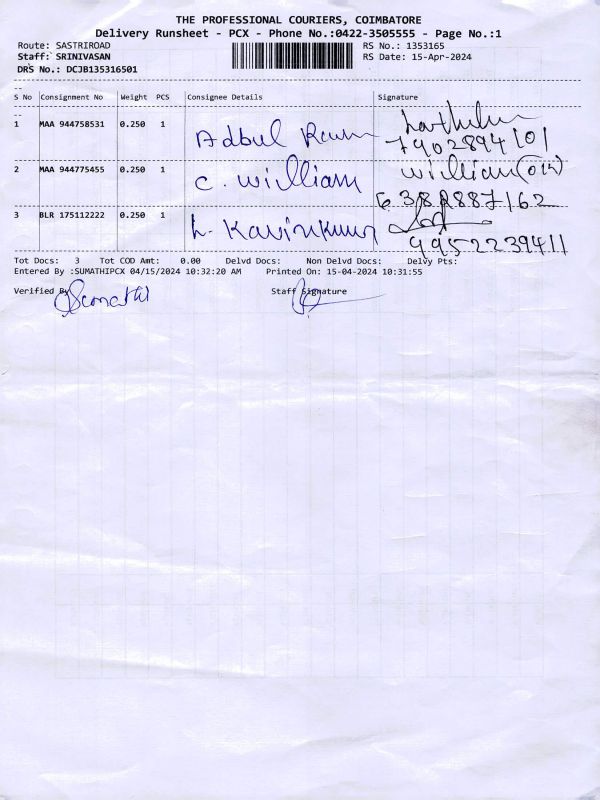 THE PROFESSIONAL COURIERS, COIMBATORE
Delivery Runsheet - PCX - Phone No.:0422-3505555 - Page No.:1
Route: SASTRIROAD RS No.: 1353165
Staff: SRINIVASAN RS Date: 15-Apr-2024
DRS No.: DCJB135316501
S No Consignment No Weight PCS Consignee Details Signature
1 MAA 944758531 0.250 1 Adbul
7902894101
2 MAA 944775455 0.250 1 C. William William
6382887162
3 BLR 175112222 0.250 1
9952239411
Tot Docs: 3 Tot COD Amt: 0.00 Delvd Docs: Non Delvd Docs: Delvy Pts:
Entered By :SUMATHIPCX 04/15/2024 10:32:20 AM Printed On: 15-04-2024 10:31:55
Verified By Sumathi Staff Signature